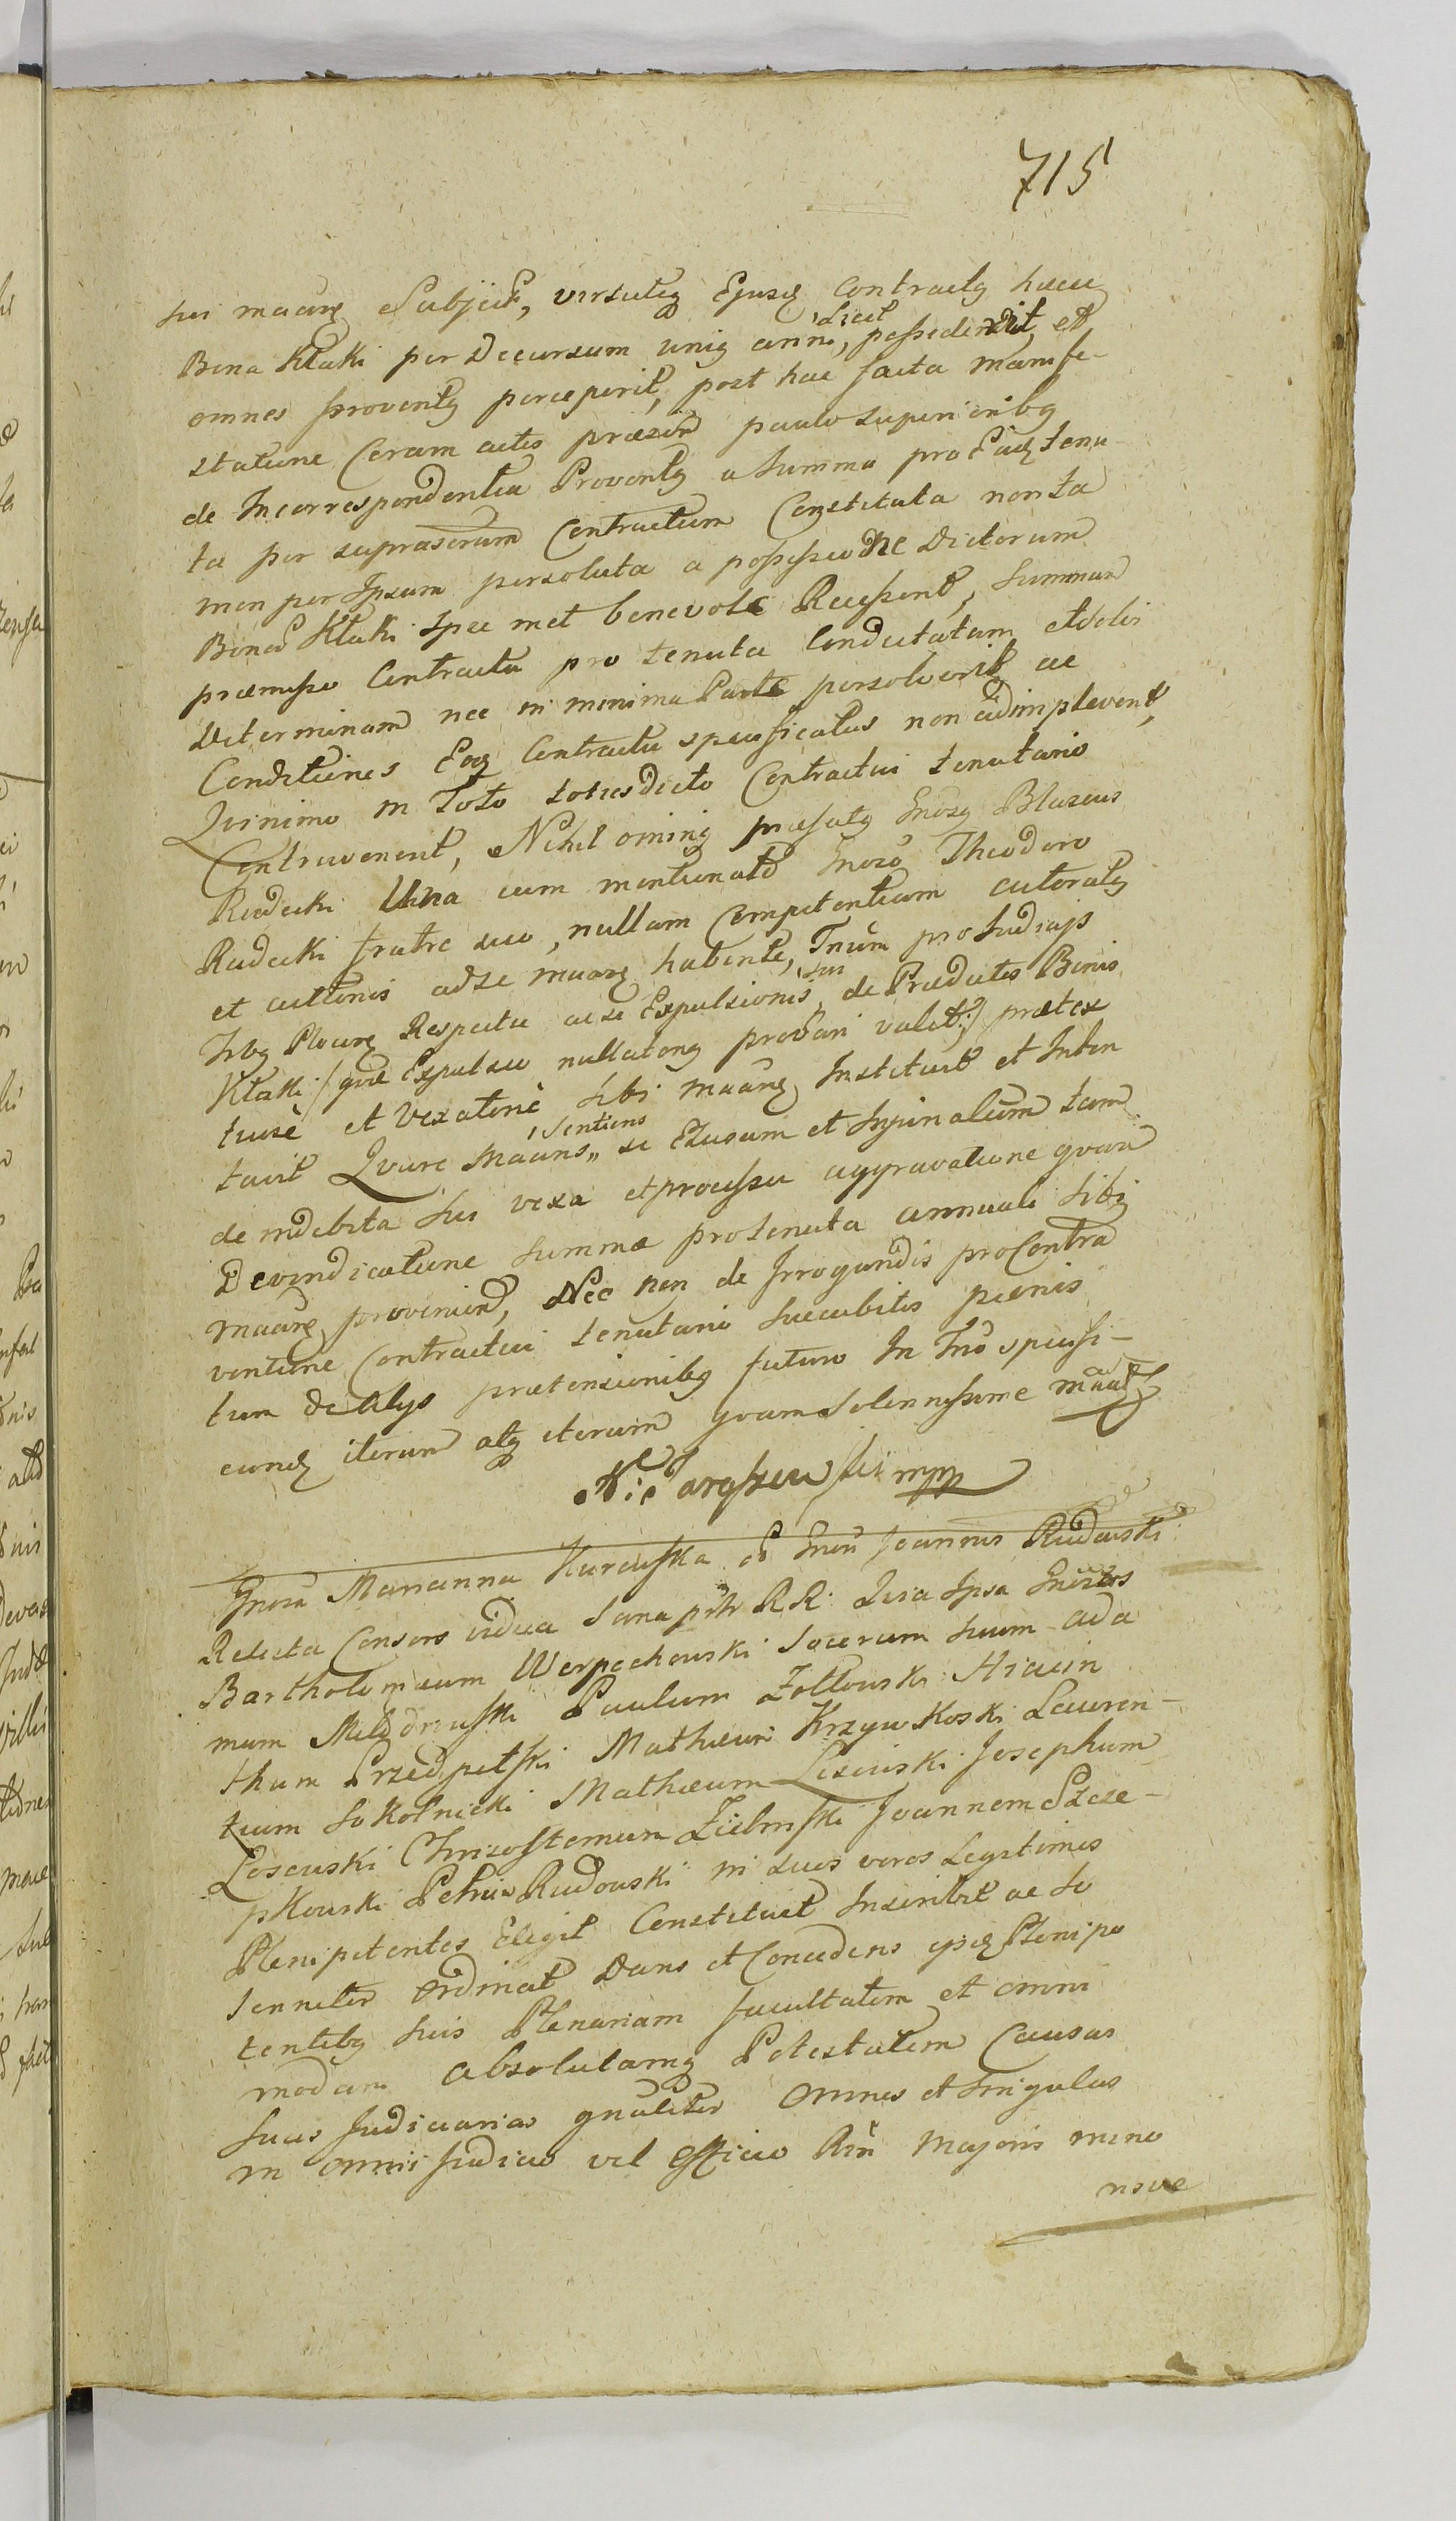 715
sui maãrẽ Subjecit, virtuteq Ejusq Contractq hucu
Bona Kłaki per Decursum uniq anni, licet possederit, et
omnes Proventq perceperit, post hac facta manife-
statione Coram actis præsen paulo superioribq
de Incorrespondentia Proventq a Summa pro Eadq tenu
ta per suprascrum Contractum Constituta non ta
men per Ipsum persoluta a possessione Dictorum
Bonor Kłaki Ipse met benevole Recessent, Summam
præmisso Contractu pro tenuta Conductatam et solu
Determinam nec in minima Parte persolverit ac
Conditiones Eoq Contractu specificatas non adimplevent,
Quinimo in Toto toties dicto Contractui tenutario
Contravenent, Nihil ominq præfatq Gnosq Blasius
Rudzki Una cum mentionato Gnoso Theodoro
Rudzki fratre suo, nullam Competentiam actoratq
et actionis ad se maarẽ habente, Tnum pro Judicijs
Trbq Plocarẽ Respectu ac si Expulsionis sui de Prædictis Bonis
Kłaki /: quæ Expulsio nullatenq probari valet :/ prætex
tuosè et Vexatoriè Sibi maanẽ Instituit et Inten
tavit Qvare Maans sentiens se Læsum et Injuriatum tam
de indebita Sui vexa et processu aggravatione qvam
Devindicatione Summæ pro tenuta annuali Sibj
maarẽ provenien, Nec non de Irrogandis pro Contra
ventione Contractui tenutario Succubitis pænis
tum de alijs prætensionibq futuro In Tno specifi-
candq iterum atq iterum qvam Solennissime maat
mpp
Gnosa Marianna Karwska G Gnsi Joannis Rudowski
Relicta Consors vidua Sana pntr RR: Quia Ipsa Gnosos
Bartholomæum Werpechowski Socerum Suum Ada
mum Paulum Zołtowski Hiacin
thum Przedpełski Mathæum Krzywkoski Lauren-
tium Sokolnicki Mathæum Lisicuski Josephum
Losewski Chrisostomum Zielinski Joannem Szcze-
pkowski Petrum Rudowski in suos veros Legitimos
Plenipotentes Elegit Constituit Inscribit ac So
lenniter Ordinat Dans et Concedens ipsq Plenipo
tentibq Suis Plenariam facultatem et omni
modam absolutamq Potestatem Causas
Suas Judiciarias gnaliter Omnes et Singulas
in omni Judicio vel Officio Rñi Majoris mino
risve